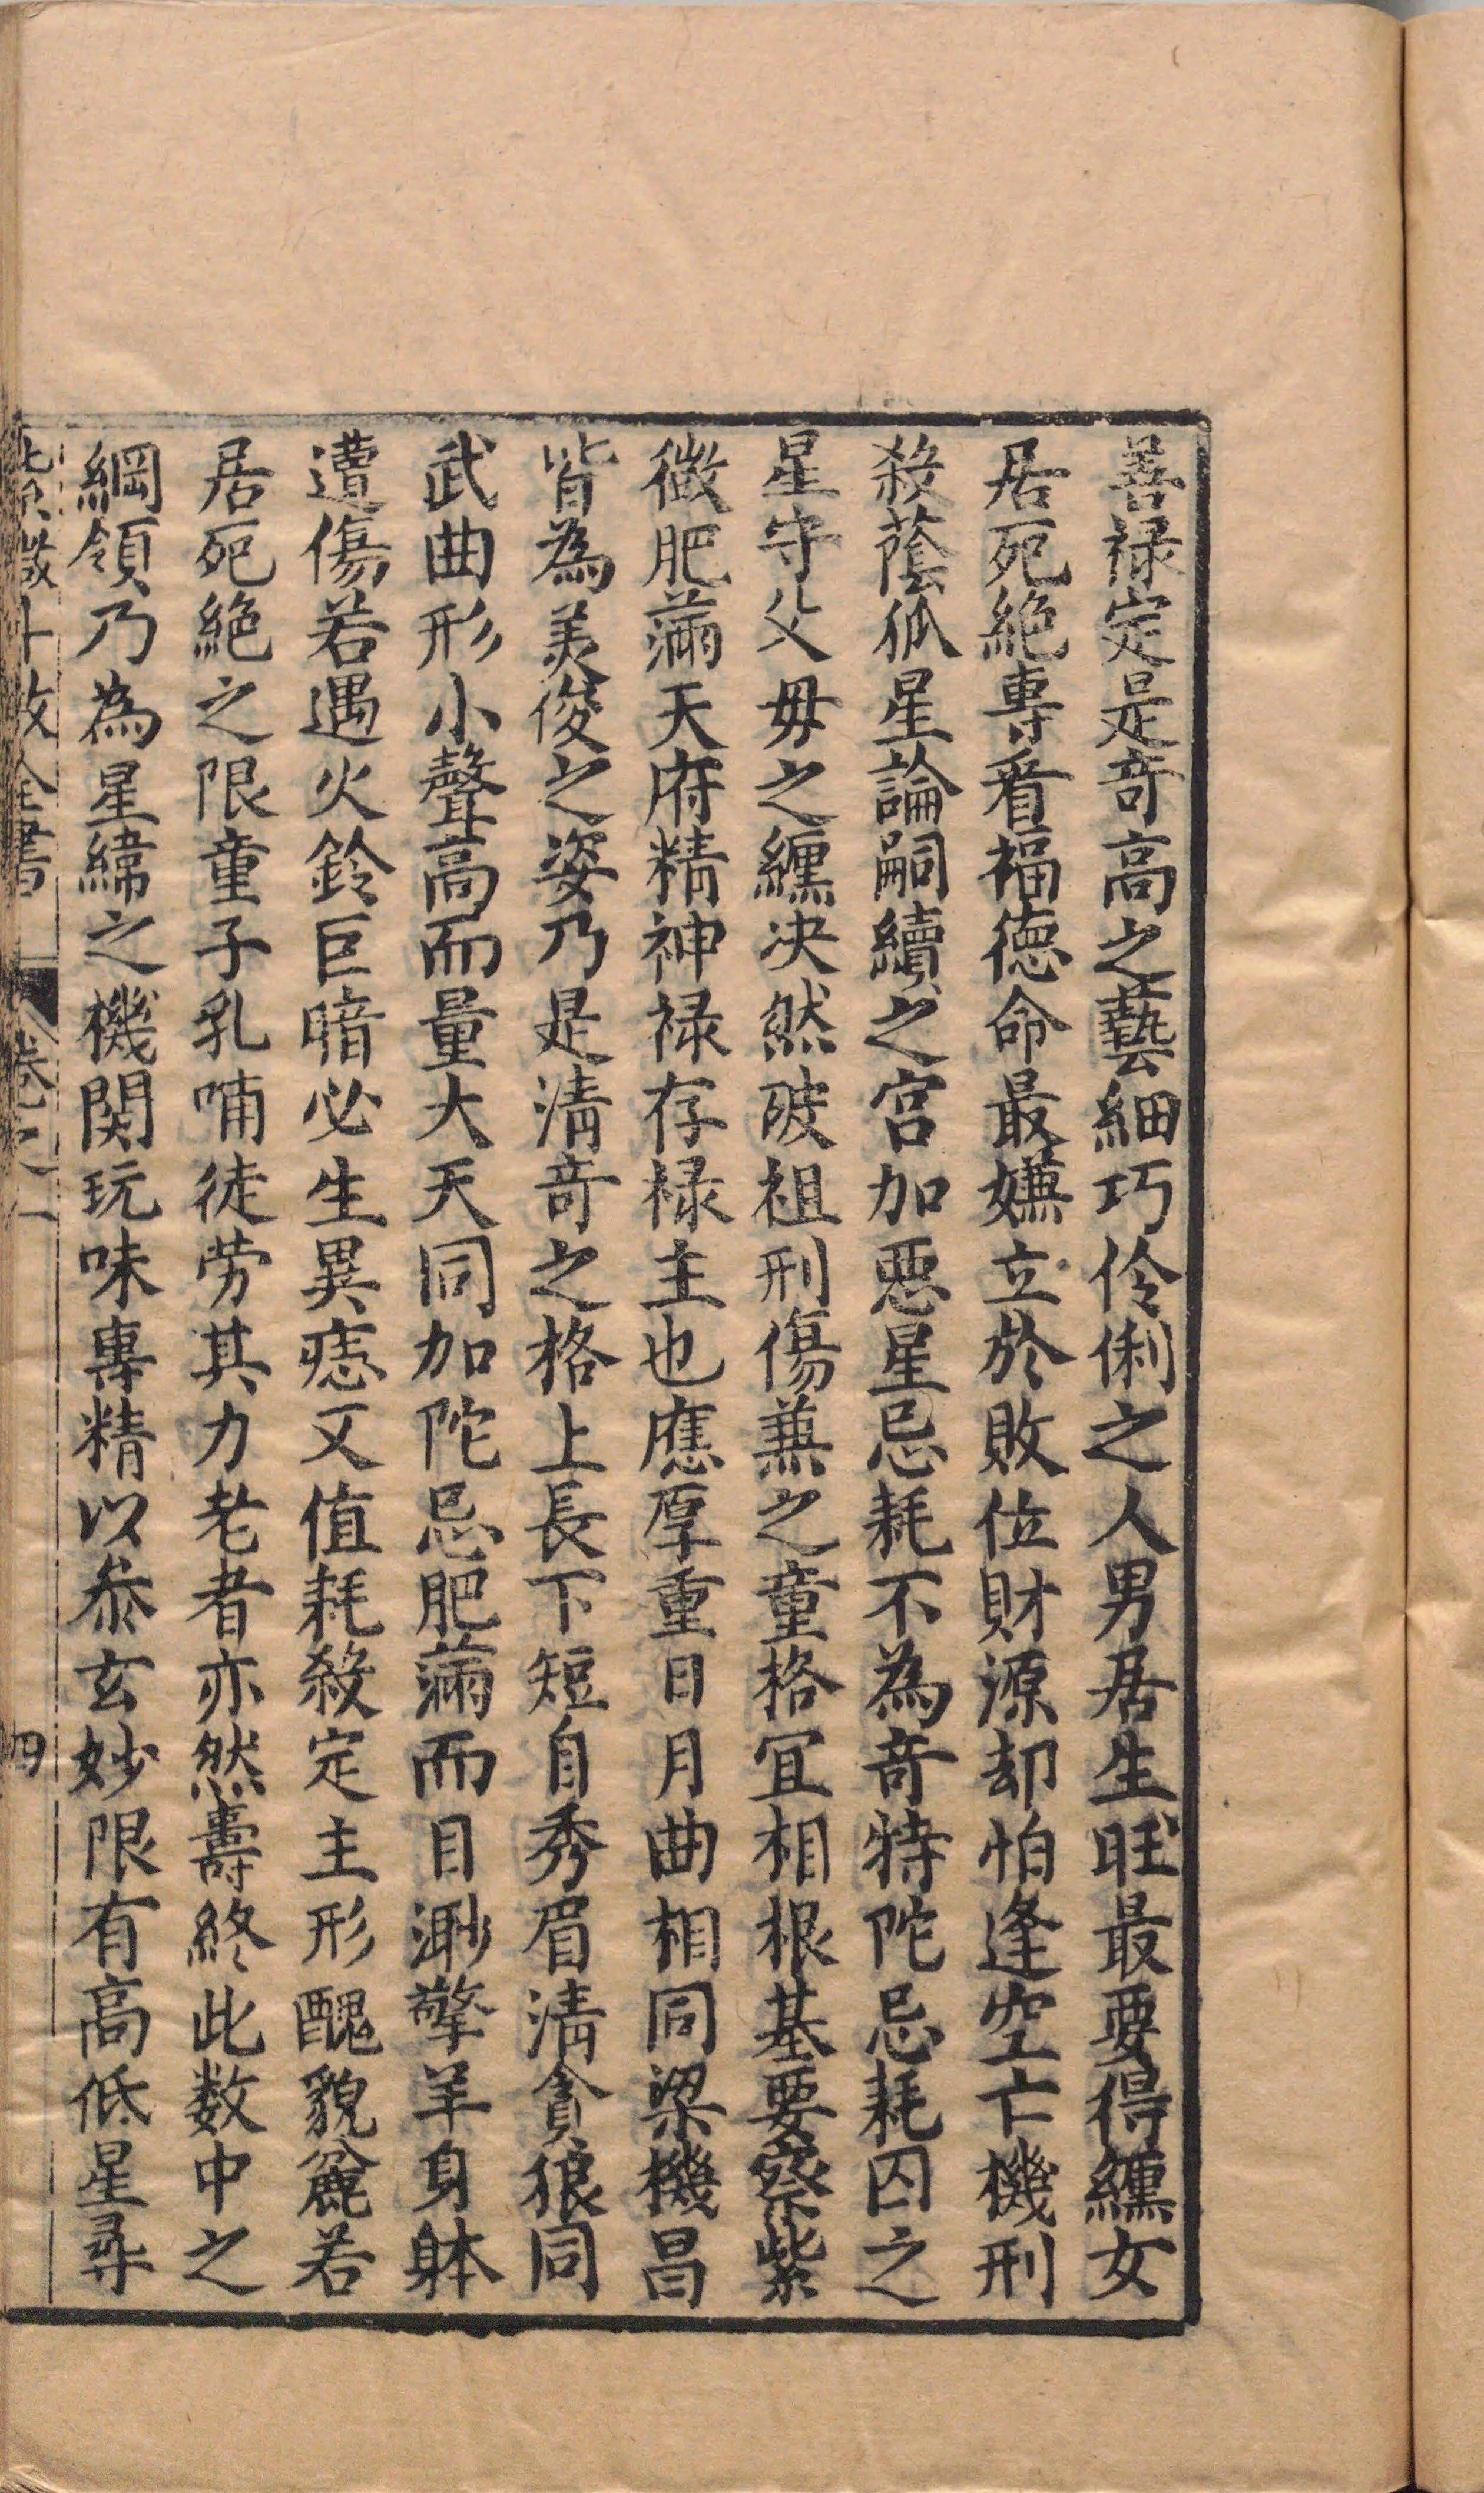 善禄定是竒高之藝細巧伶俐之人男居生旺最要得纏女
居死絶專看福德命最嫌立於敗位財源却怕逢空亡機刑
殺蔭狐星論嗣續之宫加惡星忌耗不為竒特陀忌耗囚之
星守父毋之纏决然破祖刑傷兼之童格宜相根基要察紫
微肥滿天府精神禄存禄主也應厚重日月曲相同梁機昌
皆為美俊之姿乃是清竒之格上長下短目秀眉清貪狼同
武曲形小聲高而量大天同加陀忌肥滿而目渺擎羊身体
遭傷若遇火鈴巨暗必生異痣又值耗殺定主形醜貌麄若
居死絶之限童子乳哺徒劳其力老者亦然壽終此数中之
綱領乃為星緯之機関玩味專精以叅玄妙限有高低星尋
紫微斗数全書 卷之一 四